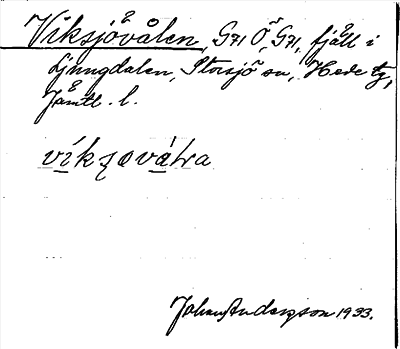 Viksjövålen, G71 Ö, G71, fjäll i
Ljungdalen, Storsjö sn, Hede tg,
Jämtl. l.
víkʂovátra
Johan Andersson 1933.